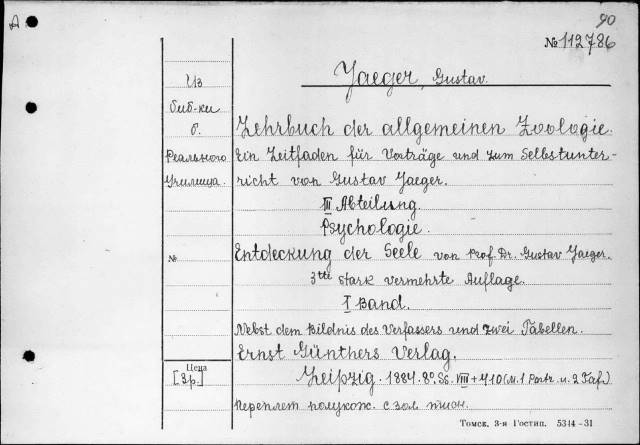 А
90
№ 112786
Jaeger, Gustav.
Из
биб-ки
б.
Реального
Училища.
Lehrbuch der allgemeinen Zoologie.
Ein Leitfaden für Vorträge und zum Selbstunter-
richt von Gustav Jaeger.
III Abteilung.
Psychologie.
№
Entdeckung der Seele von Prof. Dr. Gustav Jaeger.
3tte stark vermehrte Auflage.
I Band.
Nebst dem Bildnis des Verfassers und zwei Tabellen.
Ernst Günthers Verlag.
Цена
[3р.]
Leipzig. 1884. 8°. Ss. VIII + 410 (M. 1 Portr. u. 2 Taf.)
Переплет полукож. с зол. тисн.
Томск. 3-я Гостип. 5314-31